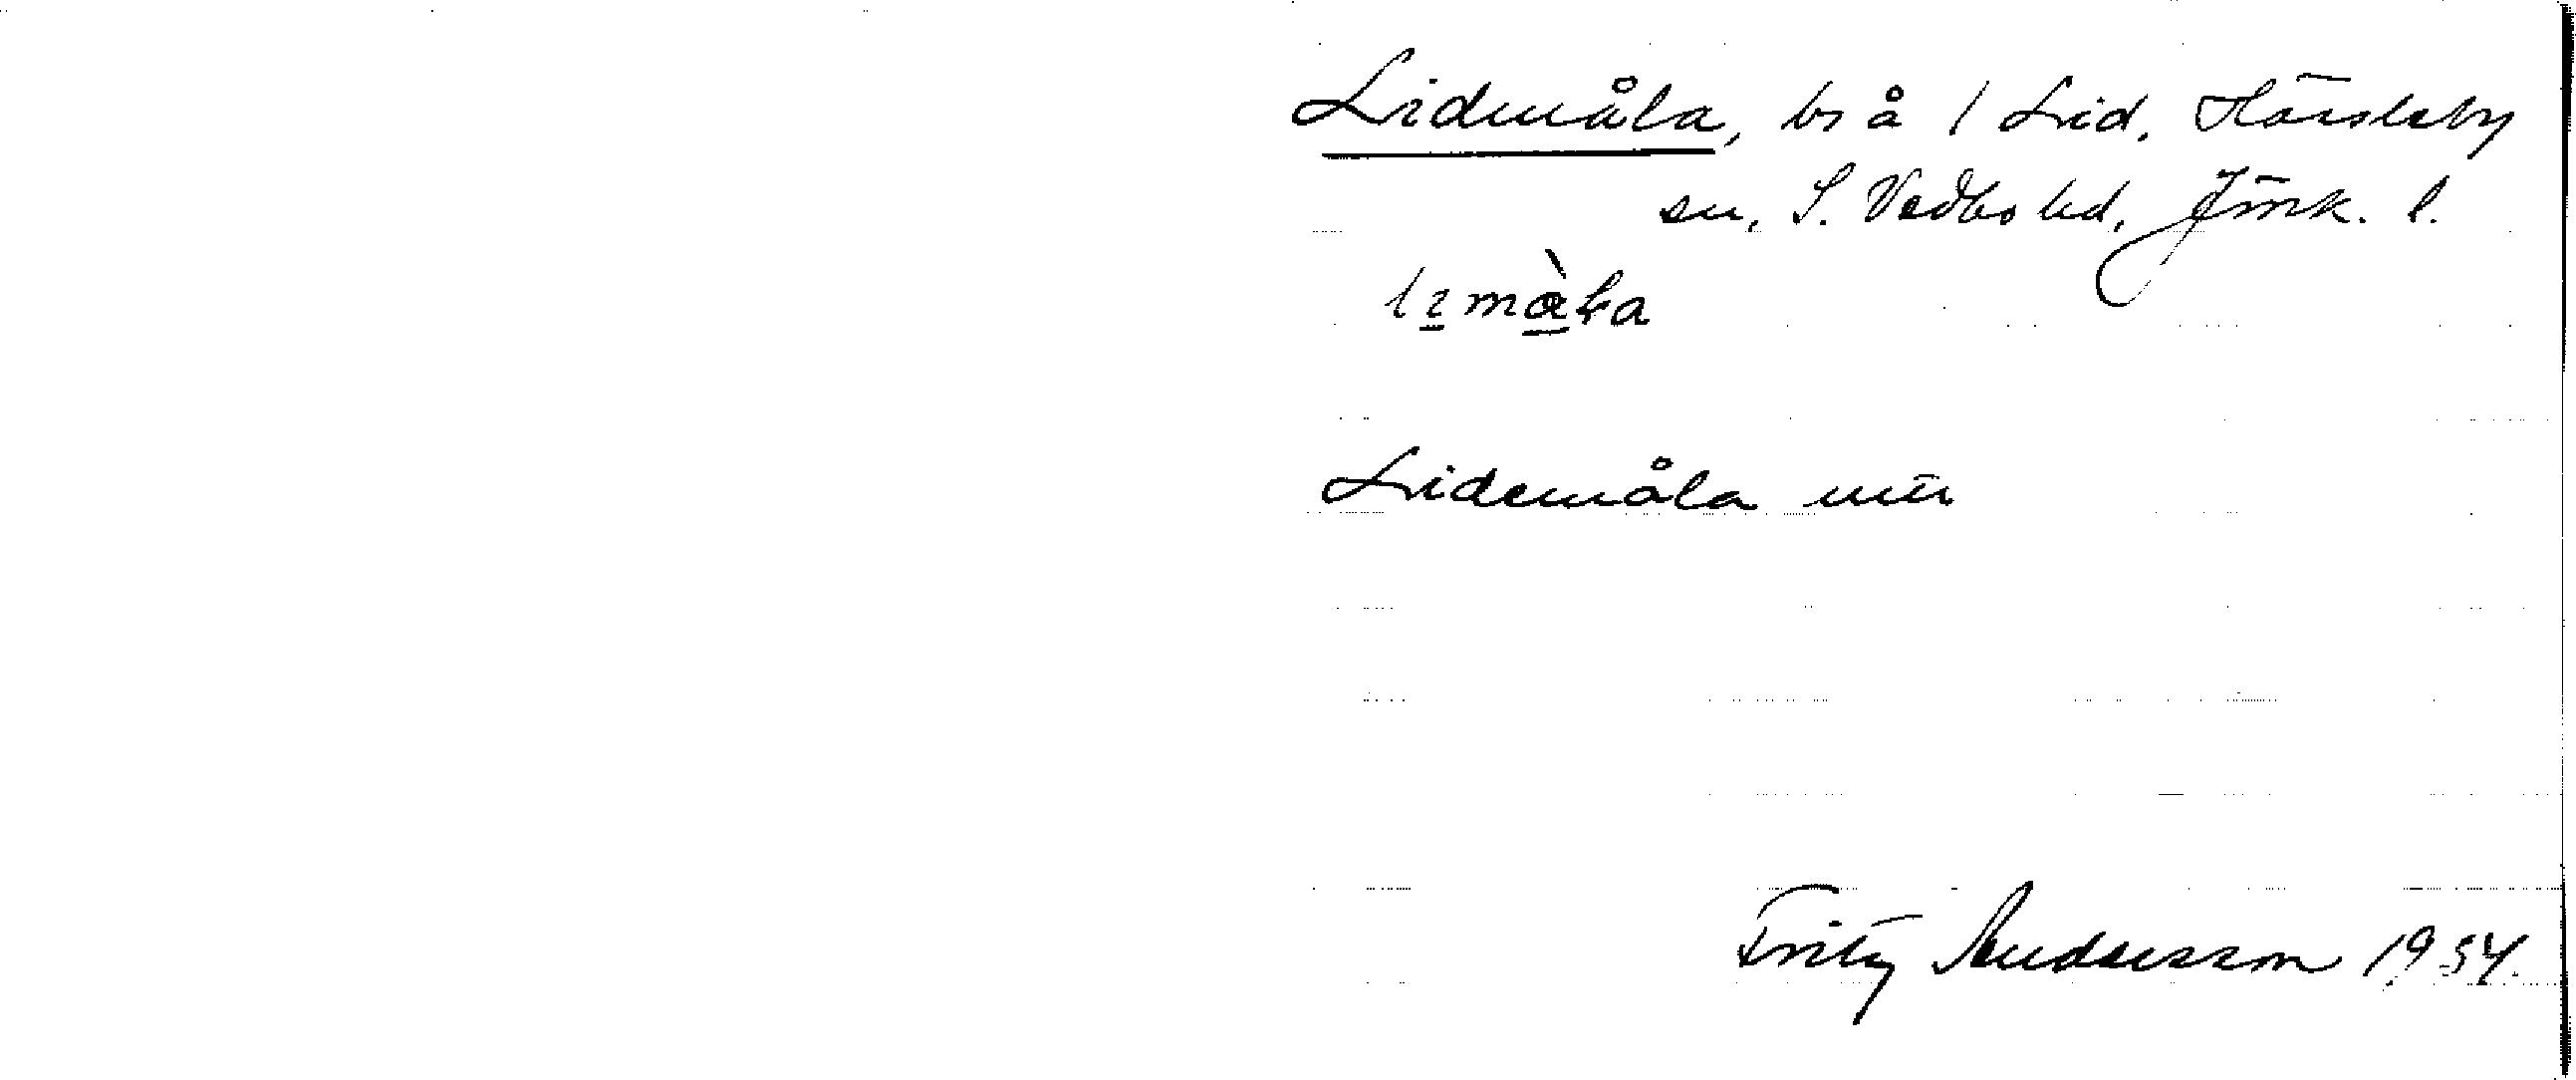 Lidmåla, bs å 1 Lid, Hässleby
sn, S. Vedbo hd, Jönk. l.
Lidemåla
Fritz Andersson 1934.